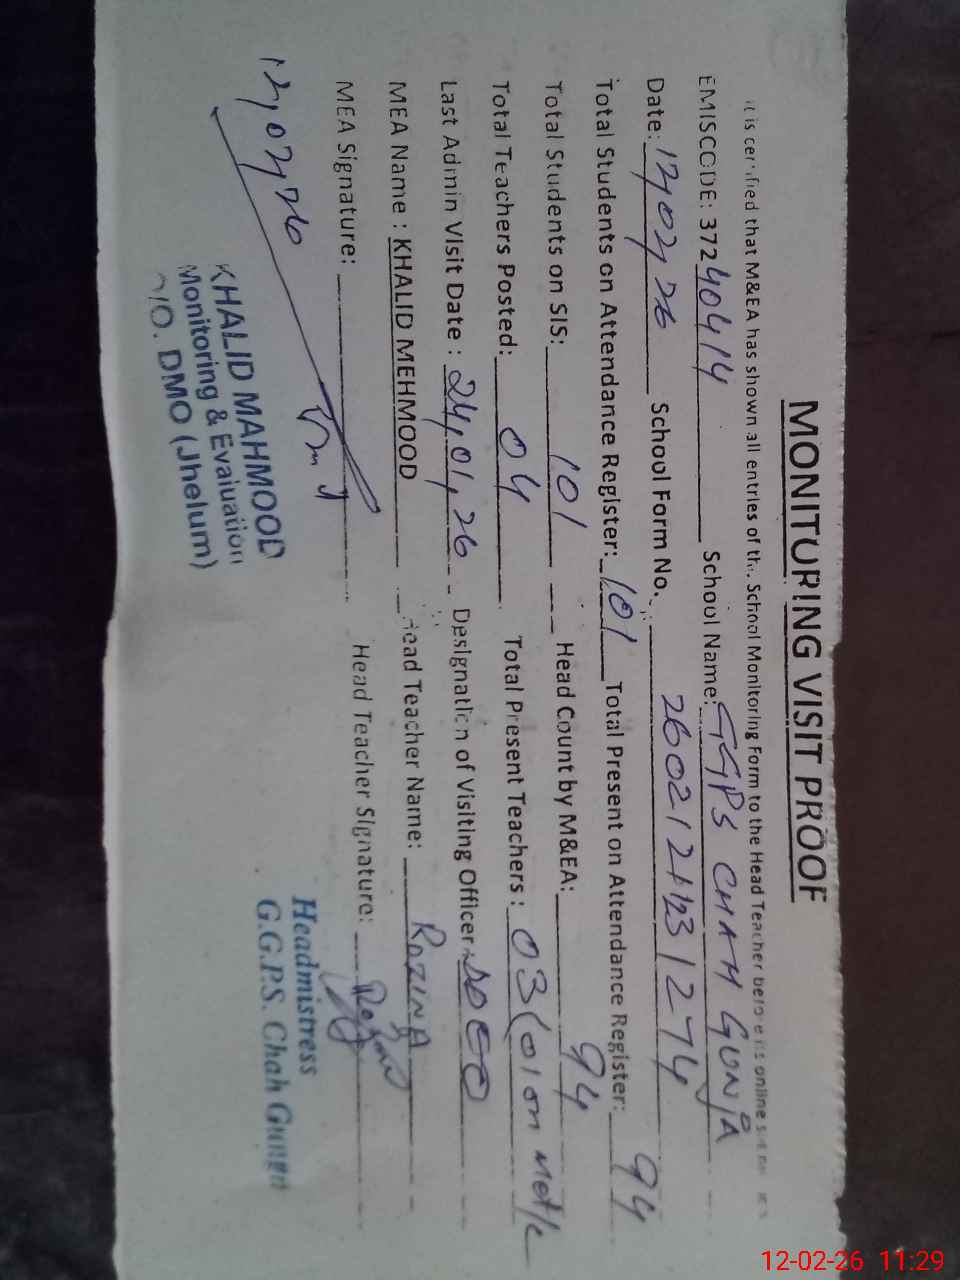 MONITURING VISIT PROOF
it is certified that M&EA has shown all entries of the School Monitoring Form to the Head Teacher before its online
EMISCODE: 37240414 School Name: GGPS CHAH GUNJA
Date: 12,02,26 School Form No. 2602121123 1274
Total Students on Attendance Register: 101 Total Present on Attendance Register: 94
Total Students on SIS: 101 Head Count by M&EA: 94
Total Teachers Posted: 04 Total Present Teachers: 03 (01 on
Last Admin Visit Date: 24,01,26 Designation of Visiting Officer:
MEA Name : KHALID MEHMOOD Head Teacher Name: ROZINA
MEA Signature: Head Teacher Signature:
12,02,26
KHALID MAHMOOD
Monitoring & Evaluation
O/O. DMO (Jhelum)
Headmistress
G.G.P.S. Chah Gunga
12-02-26 11:29